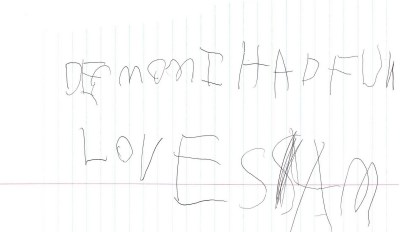 DE mom I HAD FUN
LOVE SAM